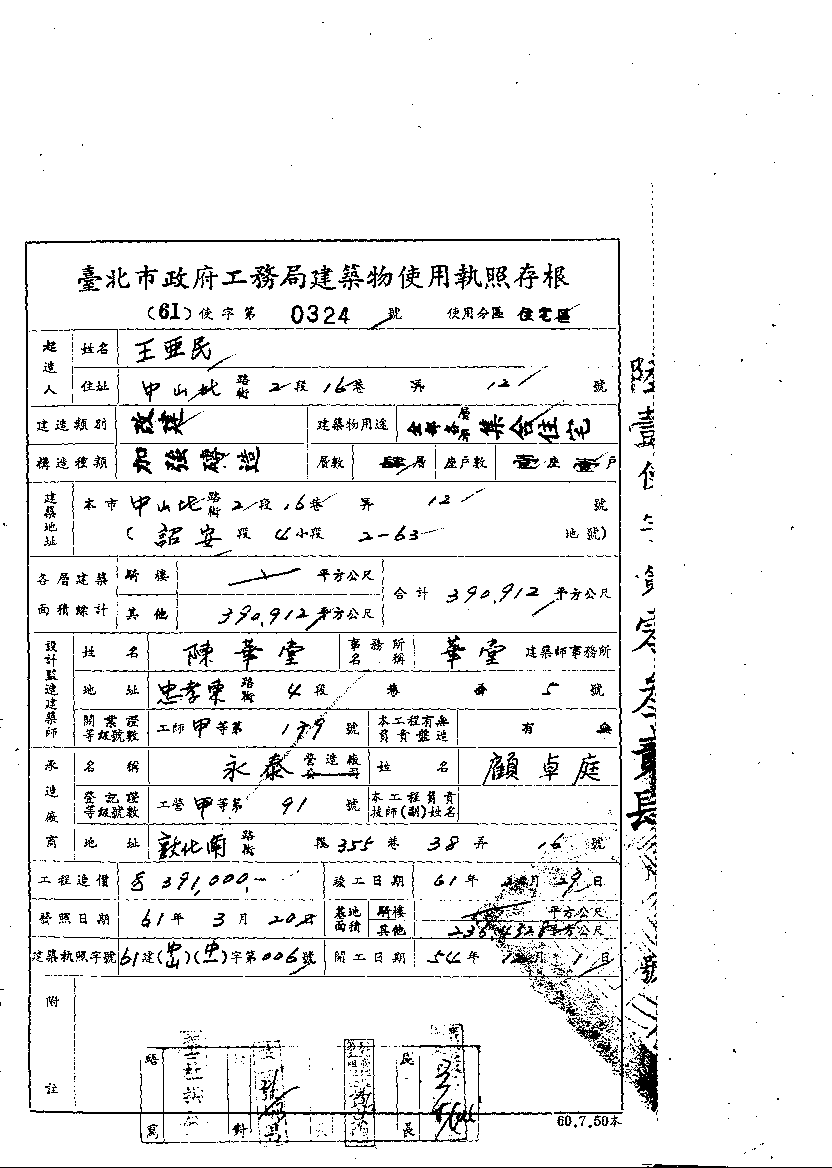 臺北市政府工務局建築物使用執照存根
(61)使字第 0324 號 使用分區 住宅區
起造人 姓名 王亜民
住址 中山北 路街 2段 16巷 弄 12 號
建造類別 改建 建築物用途 全部各層 集合住宅
構造種類 加強磚造 層數 肆層 座戶數 壹座 壹戶
建築地址 本市 中山北 路街 2段 16巷 弄 12 號
( 詔安 段 4小段 2-63 地號)
各層建築面積總計 騎樓 平方公尺 合計 390.912 平方公尺
其他 390.912 平方公尺
設計監造建築師 姓名 陳華堂 事務所名稱 華堂 建築師事務所
地址 忠孝東 路街 4段 巷 弄 5 號
開業證等級號數 工師甲等第 179 號 本工程有無負責監造 有 無
承造廠商 名稱 永泰 營造廠公司 姓名 顧卓庭
登記證等級號數 工營甲等第 91 號 本工程負責技師(副)姓名
地址 敦化南 路街 段 355巷 38弄 16 號
工程造價 391,000.- 竣工日期 61年 月 29日
發照日期 61年 3月 20日 基地面積 騎樓 平方公尺
其他 平方公尺
建築執照字號 61建(中山)(中)字第006號 開工日期 54年 12月 1日
附註
60.7.50本
陸壹使字第零叁貳肆號